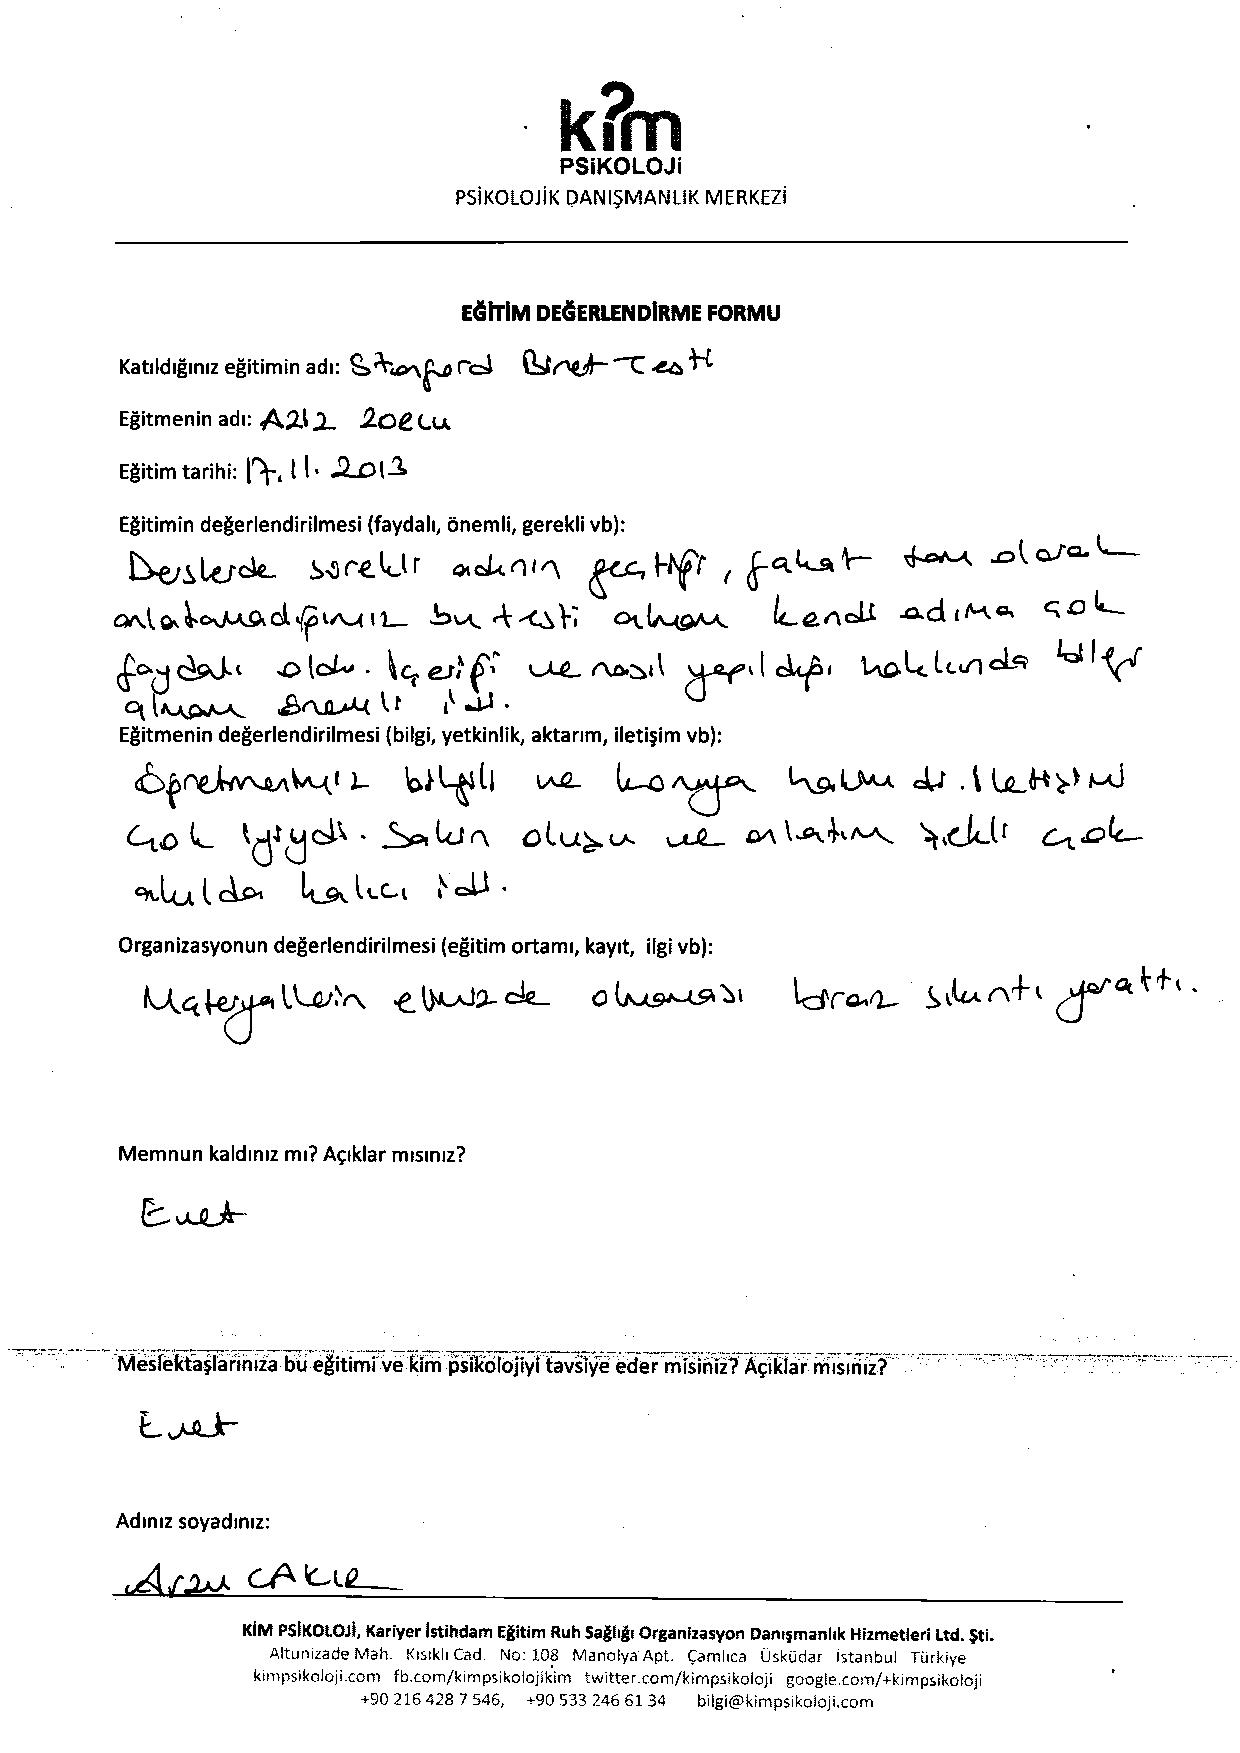 kim
PSİKOLOJİ
PSİKOLOJİK DANIŞMANLIK MERKEZİ
EĞİTİM DEĞERLENDİRME FORMU
Katıldığınız eğitimin adı: Stanford Binet Testi
Eğitmenin adı: Aziz Zorlu
Eğitim tarihi: 17.11.2013
Eğitimin değerlendirilmesi (faydalı, önemli, gerekli vb):
Derslerde sürekli adının geçtiği, fakat tam olarak
anlatamadığımız bu testi almam kendi adıma çok
faydalı oldu. İçeriği ve nasıl yapıldığı hakkında bilgi
almam önemli idi.
Eğitmenin değerlendirilmesi (bilgi, yetkinlik, aktarım, iletişim vb):
Öğretmenimiz bilgili ve konuya hakim di. İletişimi
çok iyiydi. Sakin oluşu ve anlatım şekli çok
akılda kalıcı idi.
Organizasyonun değerlendirilmesi (eğitim ortamı, kayıt, ilgi vb):
Materyallerin elimizde olmaması biraz sıkıntı yarattı.
Memnun kaldınız mı? Açıklar mısınız?
Evet
Meslektaşlarınıza bu eğitimi ve kim psikolojiyi tavsiye eder misiniz? Açıklar mısınız?
Evet
Adınız soyadınız:
Arzu ÇAKIR
KİM PSİKOLOJİ, Kariyer İstihdam Eğitim Ruh Sağlığı Organizasyon Danışmanlık Hizmetleri Ltd. Şti.
Altunizade Mah. Kısıklı Cad. No: 108 Manolya Apt. Çamlıca Üsküdar İstanbul Türkiye
kimpsikoloji.com fb.com/kimpsikolojikim twitter.com/kimpsikoloji google.com/+kimpsikoloji
+90 216 428 7 546, +90 533 246 61 34 bilgi@kimpsikoloji.com